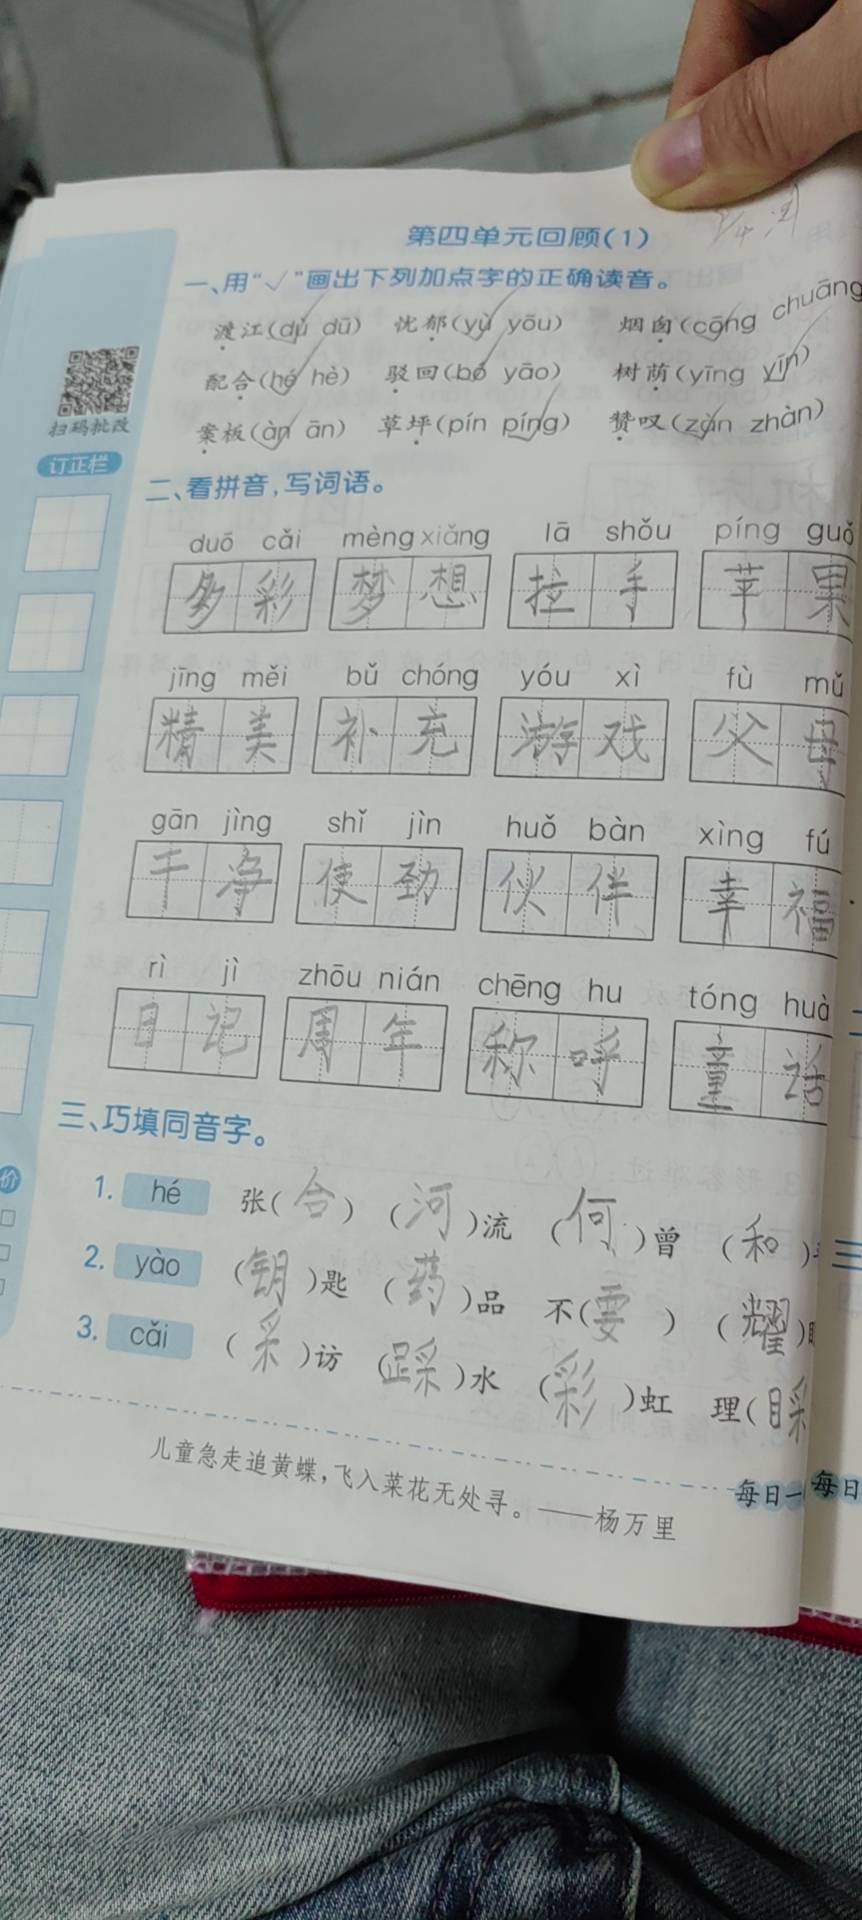 第四单元回顾(1)
一、用“√”画出下列加点字的正确读音。
渡江(dù dū) 忧郁(yù yōu) 烟囱(cōng chuāng
配合(hé hè) 驳回(bó yāo) 树荫(yīng yīn)
案板(àn ān) 草坪(pín píng) 赞叹(zàn zhàn)
扫码批改
订正栏
二、看拼音,写词语。
duō cǎi mèng xiǎng lā shǒu píng guǒ
多彩 梦想 拉手 苹果
jīng měi bǔ chóng yóu xì fù mǔ
精美 补充 游戏 父母
gān jìng shǐ jìn huǒ bàn xìng fú
干净 使劲 伙伴 幸福
rì jì zhōu nián chēng hu tóng huà
日记 周年 称呼 童话
三、巧填同音字。
1. hé 张(合) (河)流 (何)曾 (和)
2. yào (钥)匙 (药)品 不(要) (耀)
3. cǎi (采)访 (踩)水 (彩)虹 理(睬
儿童急走追黄蝶,飞入菜花无处寻。——杨万里
每日一
每日
价